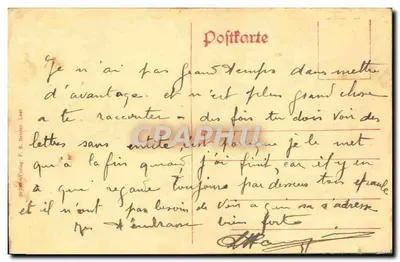 Postkarte
Je n'ai pas grand temps dans mettre
d'avantage. et n'est plus grand chose
a te raconter. des fois tu dois voir des
lettres sans entete c'est parceque je le met
qu'à la fin quand j'ai finit, car il y en
a qui regarde toujours par dessus ton epaule
et il n'ont pas besoin de voir a qui sa s'adresse
t'embrasse bien fort
CPARAMA